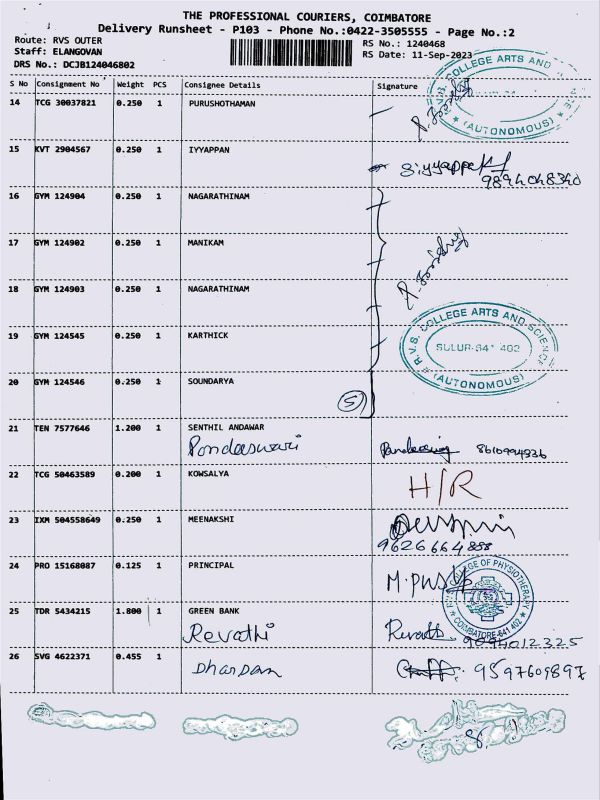 THE PROFESSIONAL COURIERS, COIMBATORE
Delivery Runsheet - P103 - Phone No.:0422-3505555 - Page No.:2
Route: RVS OUTER
RS No.: 1240468
Staff: ELANGOVAN
RS Date: 11-Sep-2023
DRS No.: DCJB124046802
S No Consignment No Weight PCS Consignee Details Signature
14 TCG 30037821 0.250 1 PURUSHOTHAMAN
R.V.S. COLLEGE ARTS AND
(AUTONOMOUS)
15 KVT 2904567 0.250 1 IYYAPPAN
9894048340
16 GYM 124904 0.250 1 NAGARATHINAM
17 GYM 124902 0.250 1 MANIKAM
18 GYM 124903 0.250 1 NAGARATHINAM
R.V.S. COLLEGE ARTS AND SCIENCE
SULUR-641 402
(AUTONOMOUS)
19 GYM 124545 0.250 1 KARTHICK
20 GYM 124546 0.250 1 SOUNDARYA
5
21 TEN 7577646 1.200 1 SENTHIL ANDAWAR
Pondeeswari
22 TCG 50463589 0.200 1 KOWSALYA
H/R
23 IXM 504558649 0.250 1 MEENAKSHI
9626664888
24 PRO 15168087 0.125 1 PRINCIPAL
COLLEGE OF PHYSIOTHERAPY
COIMBATORE-641 402
25 TDR 5434215 1.800 1 GREEN BANK
Revathi Revathi 9094012325
26 SVG 4622371 0.455 1 DHARSAN
9597609897